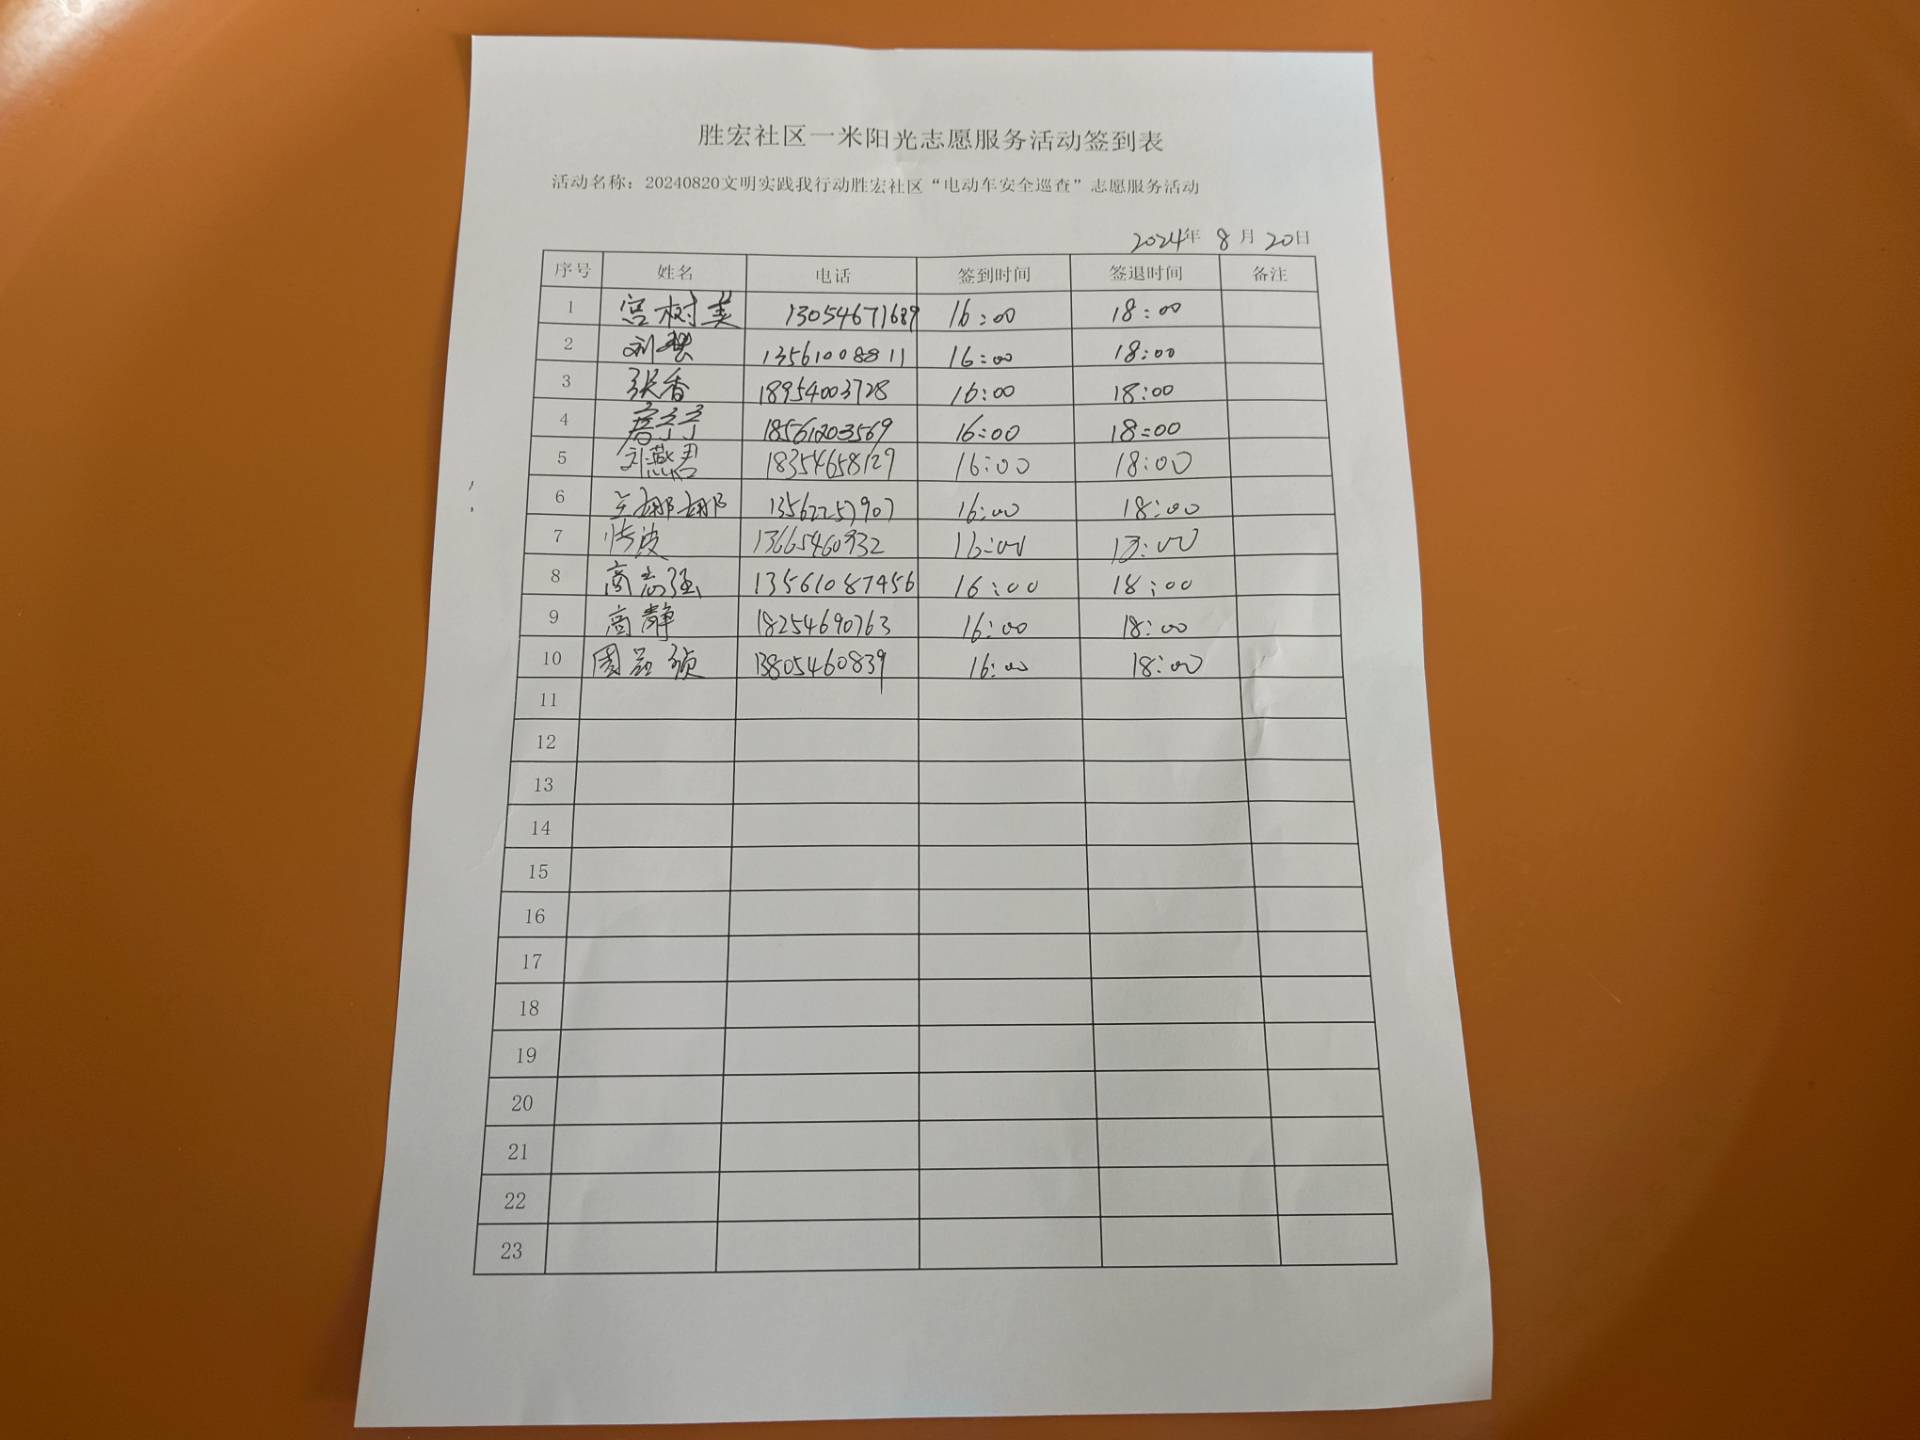 胜宏社区一米阳光志愿服务活动签到表
活动名称：20240820文明实践我行动胜宏社区“电动车安全巡查”志愿服务活动
2024年 8月 20日
序号 姓名 电话 签到时间 签退时间 备注
1 宫树美 13054671689 16:00 18:00
2 刘 13561008811 16:00 18:00
3 张香 18954003728 16:00 18:00
4 18561203569 16:00 18:00
5 刘燕君 18354658129 16:00 18:00
6 王娜娜 13562257907 16:00 18:00
7 张波 13665460932 16:00 18:00
8 高志强 13561087456 16:00 18:00
9 高静 18254690763 16:00 18:00
10 13805460839 16:00 18:00
11
12
13
14
15
16
17
18
19
20
21
22
23